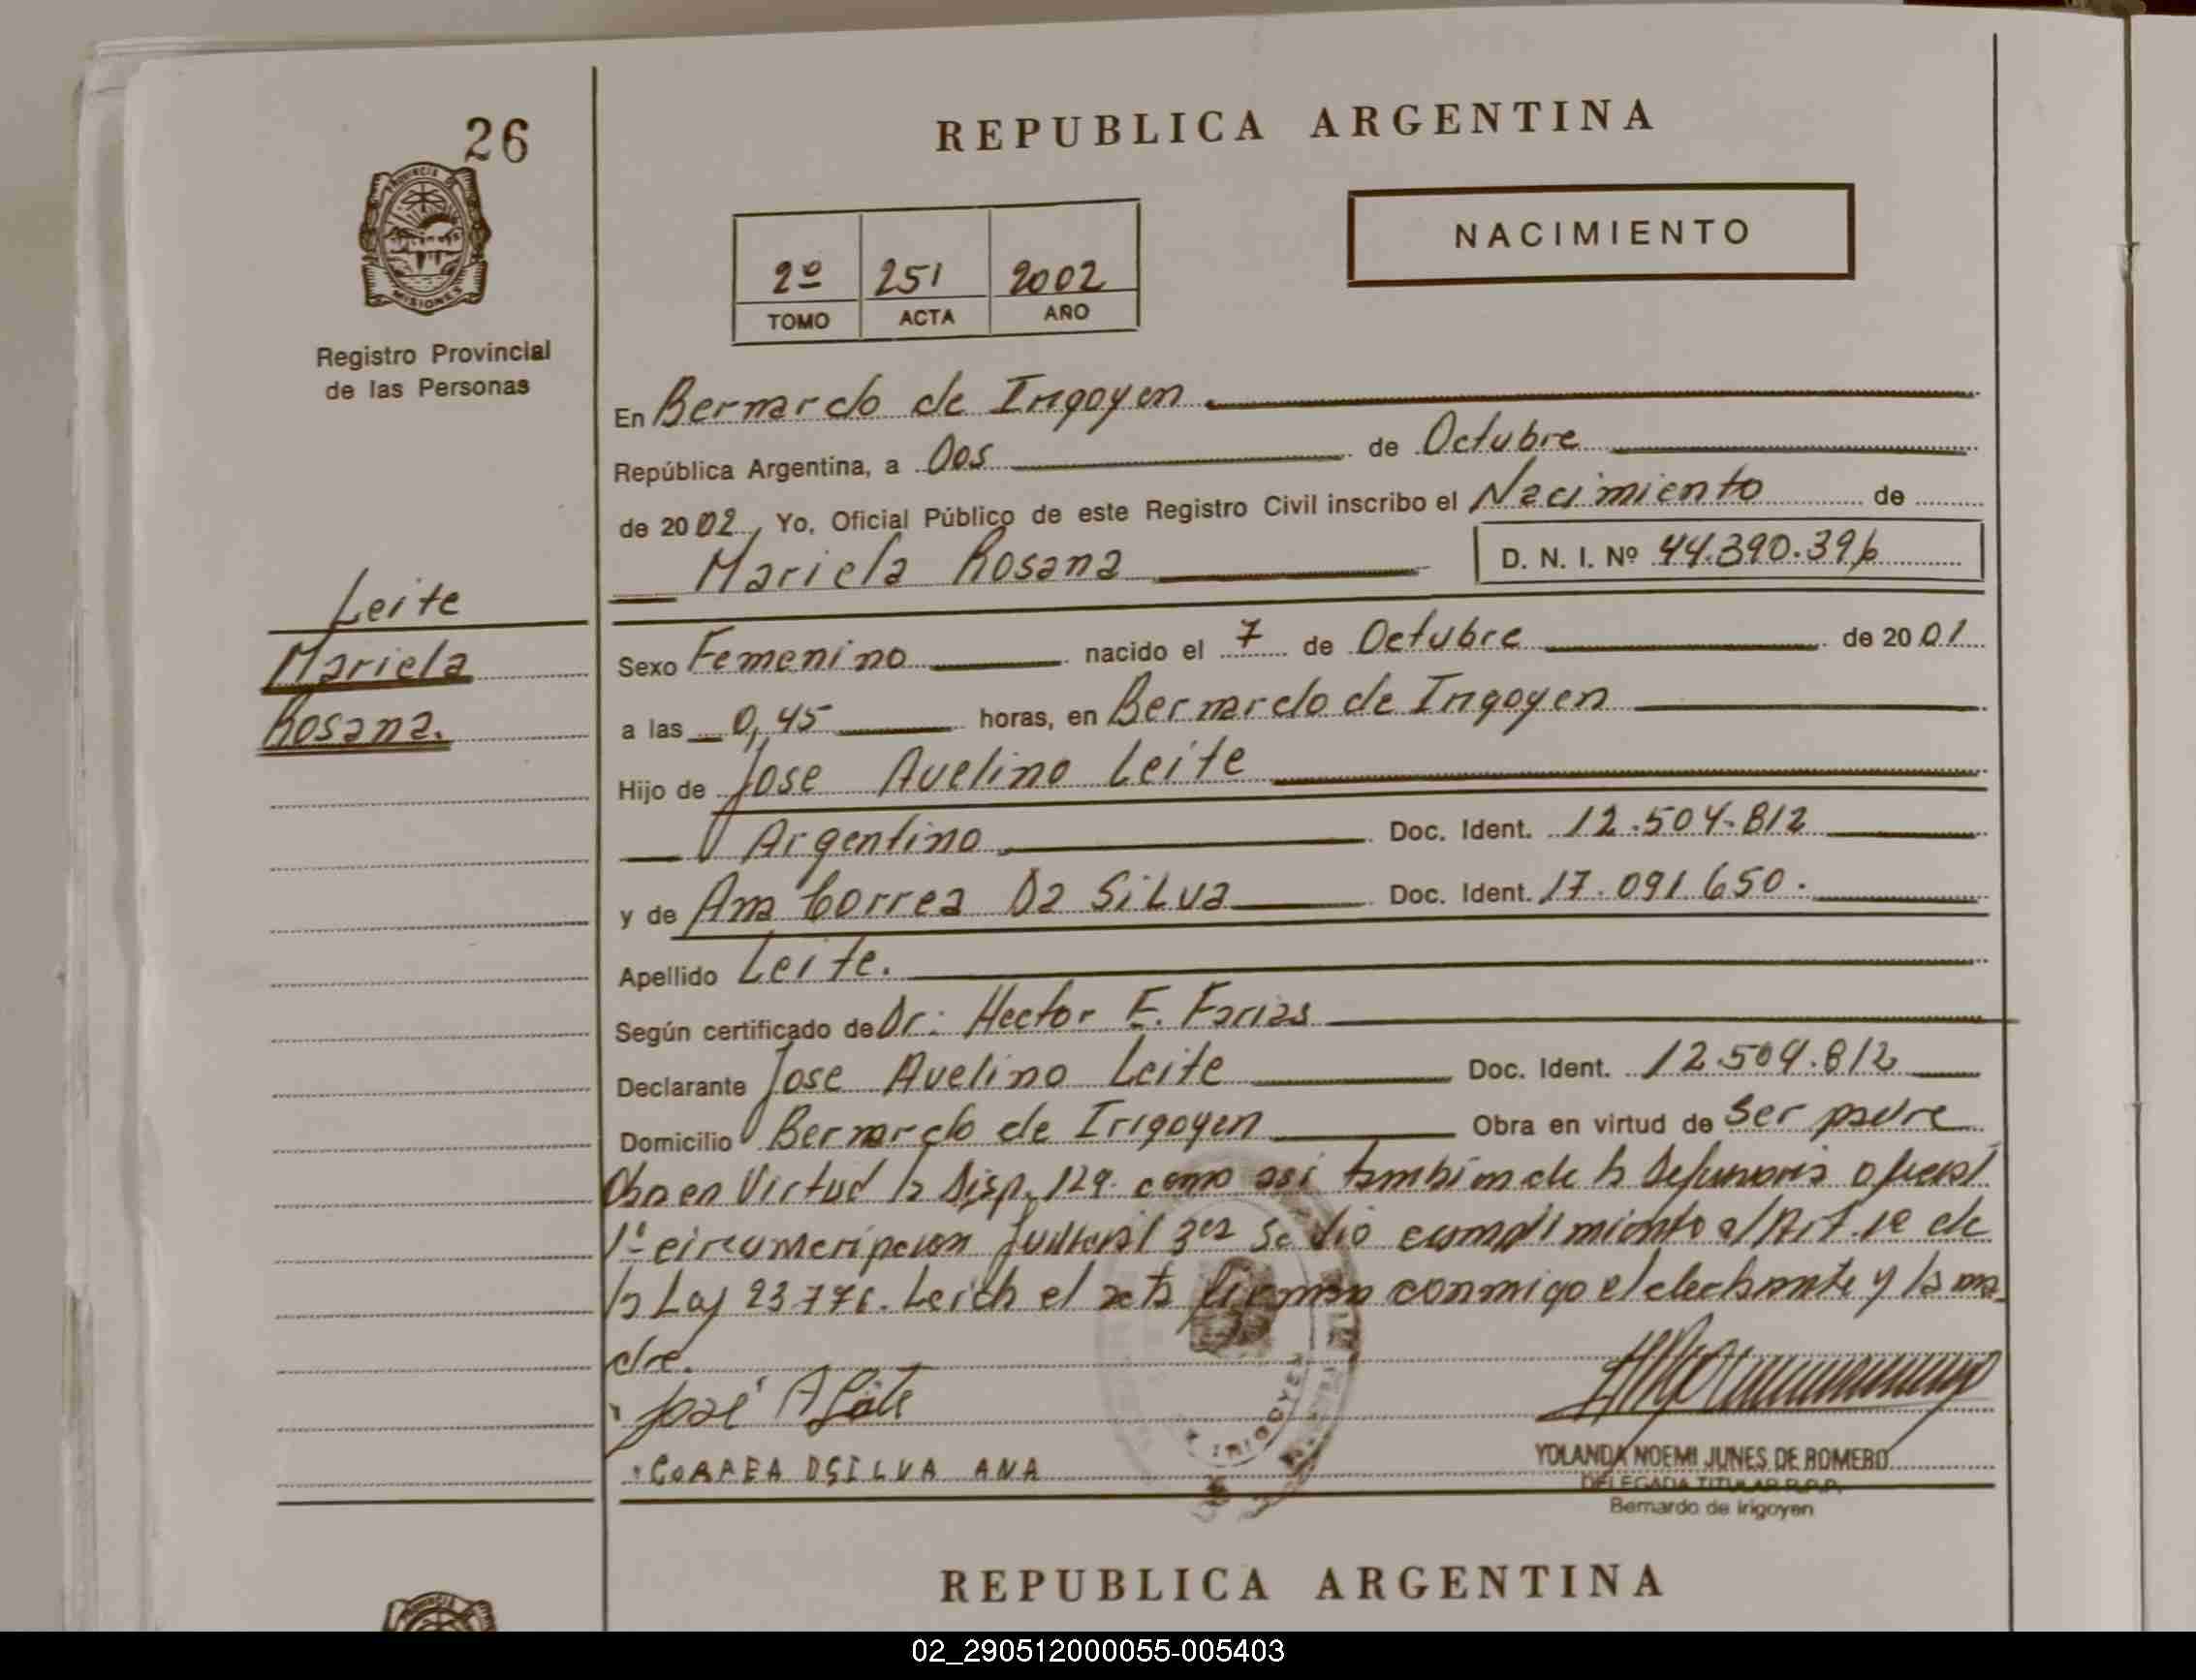 26
PROVINCIA DE
MISIONES
Registro Provincial
de las Personas
Leite
Mariela
Rosana.
REPUBLICA ARGENTINA
NACIMIENTO
2º 251 2002
TOMO ACTA AÑO
En Bernardo de Irigoyen
República Argentina, a Dos de Octubre
de 2002, Yo, Oficial Público de este Registro Civil inscribo el Nacimiento de
Mariela Rosana D. N. I. Nº 44.390.396
Sexo Femenino nacido el 7 de Octubre de 2001
a las 0,45 horas, en Bernardo de Irigoyen
Hijo de Jose Avelino Leite
Argentino Doc. Ident. 12.504.812
y de Ana Correa Da Silva Doc. Ident. 17.091.650.
Apellido Leite.
Según certificado de Dr: Hector E. Farias
Declarante Jose Avelino Leite Doc. Ident. 12.504.812
Domicilio Bernardo de Irigoyen Obra en virtud de Ser padre
Obra en Virtud la Disp. 129. como asi tambien de la Defensoria oficial
1º circumcripcion Judicial 3era Se dio cumplimiento al Art. 1º de
la Ley 23.776. Leida el acta firman conmigo el declarante y la ma
dre.
José A Leite
CORREA DSILVA ANA
IRIGOYEN
YOLANDA NOEMI JUNES DE ROMERO
DELEGADA TITULAR R.P.P.
Bernardo de Irigoyen
REPUBLICA ARGENTINA
02_290512000055-005403